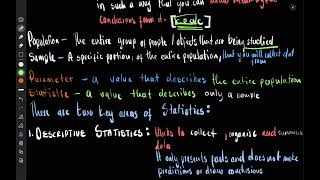 in such a way that you can
Conclusions from it.
Population - The entire group of people / objects that are being studied
Sample - A specific portion, of the entire population, that you will collect data from
Parameter - a value that describes the entire population
Statistic - a value that describes only a sample
There are two key areas of Statistics:
1. DESCRIPTIVE STATISTICS: Used to collect, organise and summarise
data
It only presents and does not make
predictions or draw conclusions